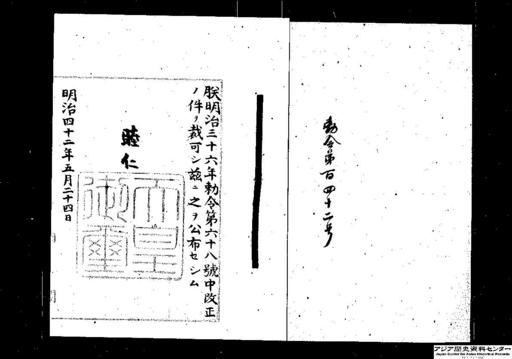 勅令第百四十二号
朕明治三十六年勅令第六十八號中改正
ノ件ヲ裁可シ茲ニ之ヲ公布セシム
睦仁
天皇御璽
明治四十二年五月二十四日
アジア歴史資料センター
Japan Center for Asian Historical Records